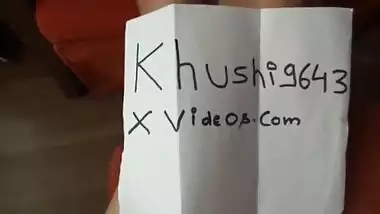 Khushi9643
XVideos.com